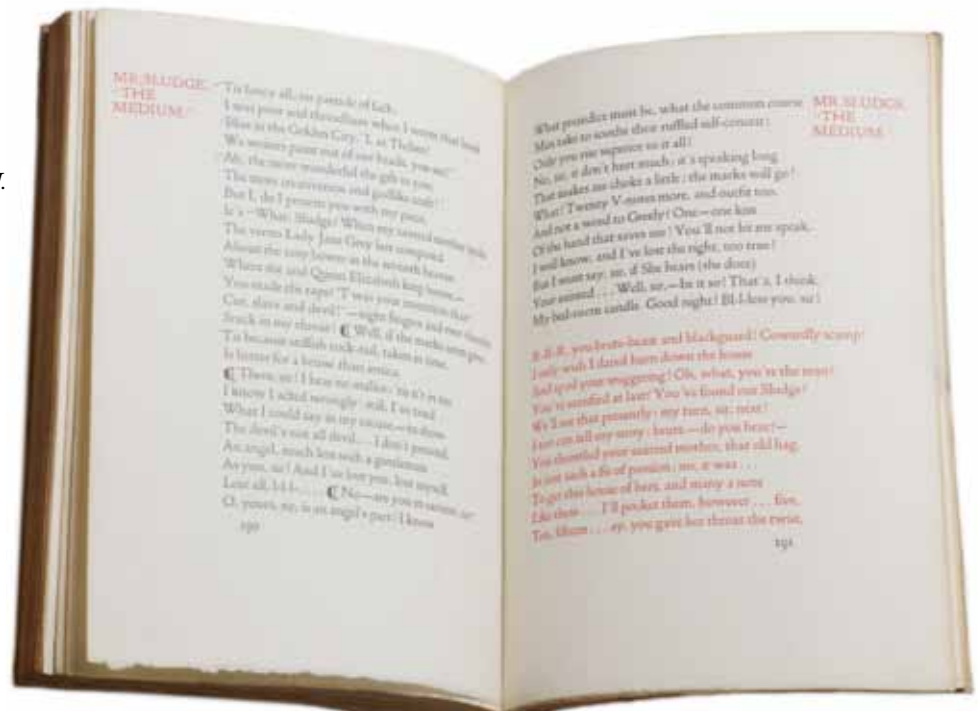 MR. SLUDGE,
"THE
MEDIUM."
'Tis fancy all; no particle of faith:
I was poor and threadbare when I wrote that book
'Bliss in the Golden City.' I, at Thebes?
We writers paint out of our heads, you see!"
"Ah, the more wonderful the gift in you,
The more creativeness and godlike craft!"
But I, do I present you with my piece,
It's "What, Sludge? When my sainted mother spoke
The verses Lady Jane Grey last composed
About the rosy bower in the seventh heaven
Where she and Queen Elizabeth keep house,—
You made the raps? 'T was your invention that?
Cur, slave and devil!"—eight fingers and two thumbs
Stuck in my throat! ¶ Well, if the marks seem gone
'Tis because stiffish cock-tail, taken in time,
Is better for a bruise than arnica.
¶ There, sir! I bear no malice: 'tis n't in me.
I know I acted wrongly: still, I've tried
What I could say in my excuse,—to show
The devil's not all devil... I don't pretend,
An angel, much less such a gentleman
As you, sir! And I've lost you, lost myself,
Lost all, l-l-l-.... ¶ No—are you in earnest, sir?
O, yours, sir, is an angel's part! I know
190
What prejudice must be, what the common course
Men take to soothe their ruffled self-conceit:
Only you rise superior to it all!
No, sir, it don't hurt much; it's speaking long
That makes me choke a little: the marks will go!
What? Twenty V-notes more, and outfit too,
And not a word to Greeley? One—one kiss
Of the hand that saves me! You'll not let me speak,
I well know, and I've lost the right, too true!
But I must say, sir, if She hears (she does)
Your sainted... Well, sir,—be it so! That's, I think,
My bed-room candle. Good night! Bl-l-less you, sir!
R-R-R, you brute-beast and blackguard! Cowardly scamp!
I only wish I dared burn down the house
And spoil your sniggering! Oh, what, you're the man?
You're satisfied at last? You've found out Sludge?
We'll see that presently: my turn, sir, next!
I too can tell my story: brute,—do you hear?—
You throttled your sainted mother, that old hag,
In just such a fit of passion: no, it was...
To get this house of hers, and many a note
Like these... I'll pocket them, however... five,
Ten, fifteen... ay, you gave her throat the twist,
191
MR. SLUDGE,
"THE
MEDIUM."